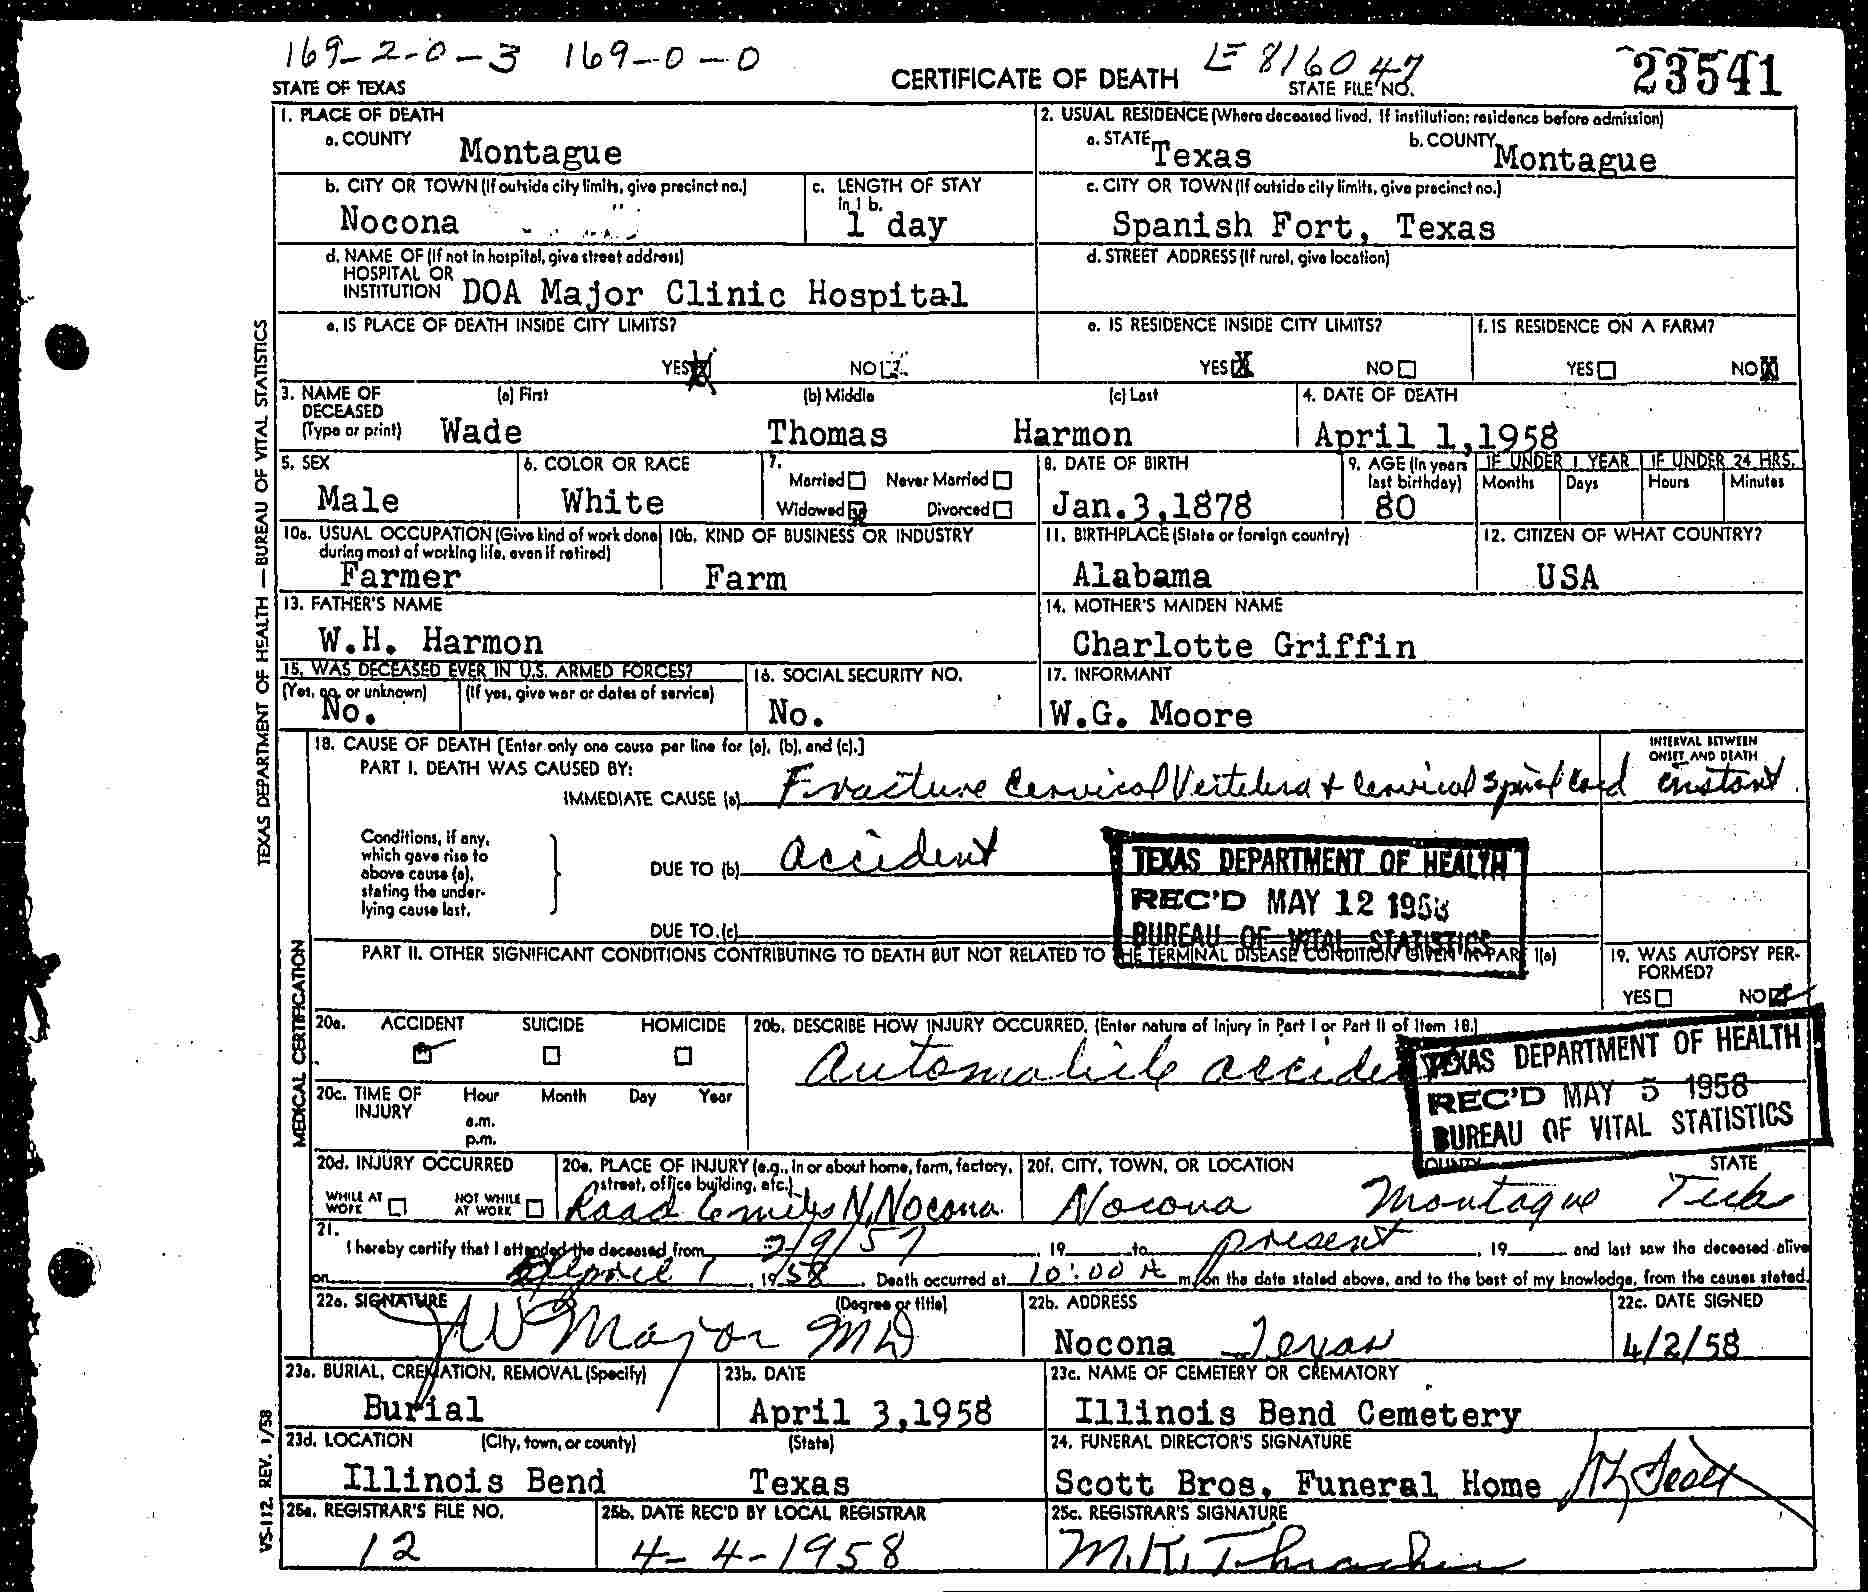 169-2-0-3 169-0-0
E 816047
23541
STATE OF TEXAS
CERTIFICATE OF DEATH
STATE FILE NO.
1. PLACE OF DEATH
a. COUNTY
Montague
2. USUAL RESIDENCE (Where deceased lived. If institution: residence before admission)
a. STATE Texas
b. COUNTY Montague
b. CITY OR TOWN (If outside city limits, give precinct no.)
Nocona
c. LENGTH OF STAY
in 1 b.
1 day
c. CITY OR TOWN (If outside city limits, give precinct no.)
Spanish Fort, Texas
d. NAME OF (If not in hospital, give street address)
HOSPITAL OR
INSTITUTION DOA Major Clinic Hospital
d. STREET ADDRESS (If rural, give location)
e. IS PLACE OF DEATH INSIDE CITY LIMITS?
YES NO
e. IS RESIDENCE INSIDE CITY LIMITS?
YES X NO
f. IS RESIDENCE ON A FARM?
YES NO X
3. NAME OF
DECEASED
(Type or print)
(a) First
Wade
(b) Middle
Thomas
(c) Last
Harmon
4. DATE OF DEATH
April 1,1958
5. SEX
Male
6. COLOR OR RACE
White
7.
Married Never Married
Widowed X Divorced
8. DATE OF BIRTH
Jan.3,1878
9. AGE (In years
last birthday)
80
IF UNDER 1 YEAR
Months Days
IF UNDER 24 HRS.
Hours Minutes
10a. USUAL OCCUPATION (Give kind of work done
during most of working life, even if retired)
Farmer
10b. KIND OF BUSINESS OR INDUSTRY
Farm
11. BIRTHPLACE (State or foreign country)
Alabama
12. CITIZEN OF WHAT COUNTRY?
USA
13. FATHER'S NAME
W.H. Harmon
14. MOTHER'S MAIDEN NAME
Charlotte Griffin
15. WAS DECEASED EVER IN U.S. ARMED FORCES?
(Yes, no, or unknown) (If yes, give war or dates of service)
No.
16. SOCIAL SECURITY NO.
No.
17. INFORMANT
W.G. Moore
18. CAUSE OF DEATH [Enter only one cause per line for (a), (b), and (c).]
PART I. DEATH WAS CAUSED BY:
IMMEDIATE CAUSE (a) Fracture Cervical Vertebra + Cervical Spinal Cord
INTERVAL BETWEEN
ONSET AND DEATH
instant
Conditions, if any,
which gave rise to
above cause (a),
stating the under-
lying cause last.
DUE TO (b) accident
DUE TO (c)
TEXAS DEPARTMENT OF HEALTH
REC'D MAY 12 1958
BUREAU OF VITAL STATISTICS
PART II. OTHER SIGNIFICANT CONDITIONS CONTRIBUTING TO DEATH BUT NOT RELATED TO THE TERMINAL DISEASE CONDITION GIVEN IN PART I(a)
19. WAS AUTOPSY PER-
FORMED?
YES NO
20a. ACCIDENT SUICIDE HOMICIDE
20b. DESCRIBE HOW INJURY OCCURRED. (Enter nature of injury in Part I or Part II of Item 18.)
Automobile accident
TEXAS DEPARTMENT OF HEALTH
REC'D MAY 5 1958
BUREAU OF VITAL STATISTICS
20c. TIME OF
INJURY
Hour Month Day Year
a.m.
p.m.
20d. INJURY OCCURRED
WHILE AT
WORK
NOT WHILE
AT WORK
20e. PLACE OF INJURY (e.g., in or about home, farm, factory,
street, office building, etc.)
Road 6 miles N. Nocona
20f. CITY, TOWN, OR LOCATION
Nocona
COUNTY
Montague
STATE
21.
I hereby certify that I attended the deceased from 2/9/57, 19 to present, 19 and last saw the deceased alive
on April 1, 1958. Death occurred at 10:00 A m. on the date stated above, and to the best of my knowledge, from the causes stated.
22a. SIGNATURE (Degree or title)
JW Major MD
22b. ADDRESS
Nocona Texas
22c. DATE SIGNED
4/2/58
23a. BURIAL, CREMATION, REMOVAL (Specify)
Burial
23b. DATE
April 3,1958
23c. NAME OF CEMETERY OR CREMATORY
Illinois Bend Cemetery
23d. LOCATION (City, town, or county) (State)
Illinois Bend Texas
24. FUNERAL DIRECTOR'S SIGNATURE
Scott Bros. Funeral Home
25a. REGISTRAR'S FILE NO.
12
25b. DATE REC'D BY LOCAL REGISTRAR
4-4-1958
25c. REGISTRAR'S SIGNATURE
M.K.
TEXAS DEPARTMENT OF HEALTH — BUREAU OF VITAL STATISTICS
MEDICAL CERTIFICATION
VS-112. REV. 1/58